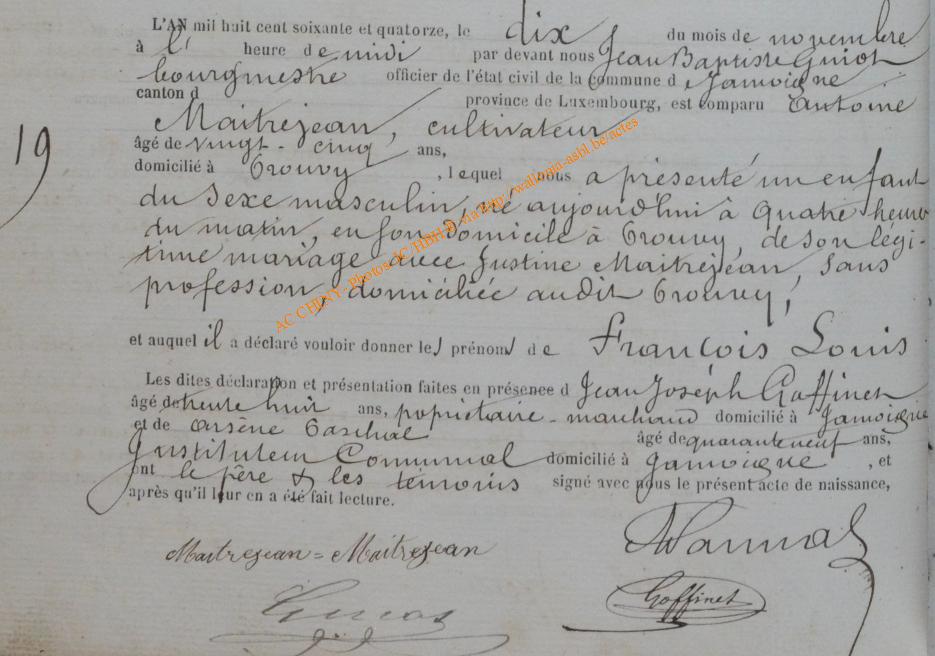 L'AN mil huit cent soixante et quatorze, le dix du mois de novembre
à l' heure de midi par devant nous Jean Baptiste Guiot
bourgmestre officier de l'état civil de la commune d e Jamoigne
canton d province de Luxembourg, est comparu Antoine
Maitrejean, cultivateur
19
âgé de vingt-cinq ans,
domicilié à Prouvy, lequel nous a présenté un enfant
du sexe masculin, né aujourd'hui à quatre heures
du matin, en son domicile à Prouvy, de son légi-
time mariage avec Justine Maitrejean, sans
profession, domiciliée audit Prouvy,
et auquel il a déclaré vouloir donner les prénoms de François Louis
Les dites déclaration et présentation faites en présence d Jean Joseph Goffinet
âgé de trente huit ans, popriétaire-marchand domicilié à Jamoigne
et de Arsène âgé de quarante neuf ans,
Instituteur Communal domicilié à Jamoigne, et
ont le père & les témoins signé avec nous le présent acte de naissance,
après qu'il leur en a été fait lecture.
Maitrejean = Maitrejean
Goffinet
AC CHINY - Photos